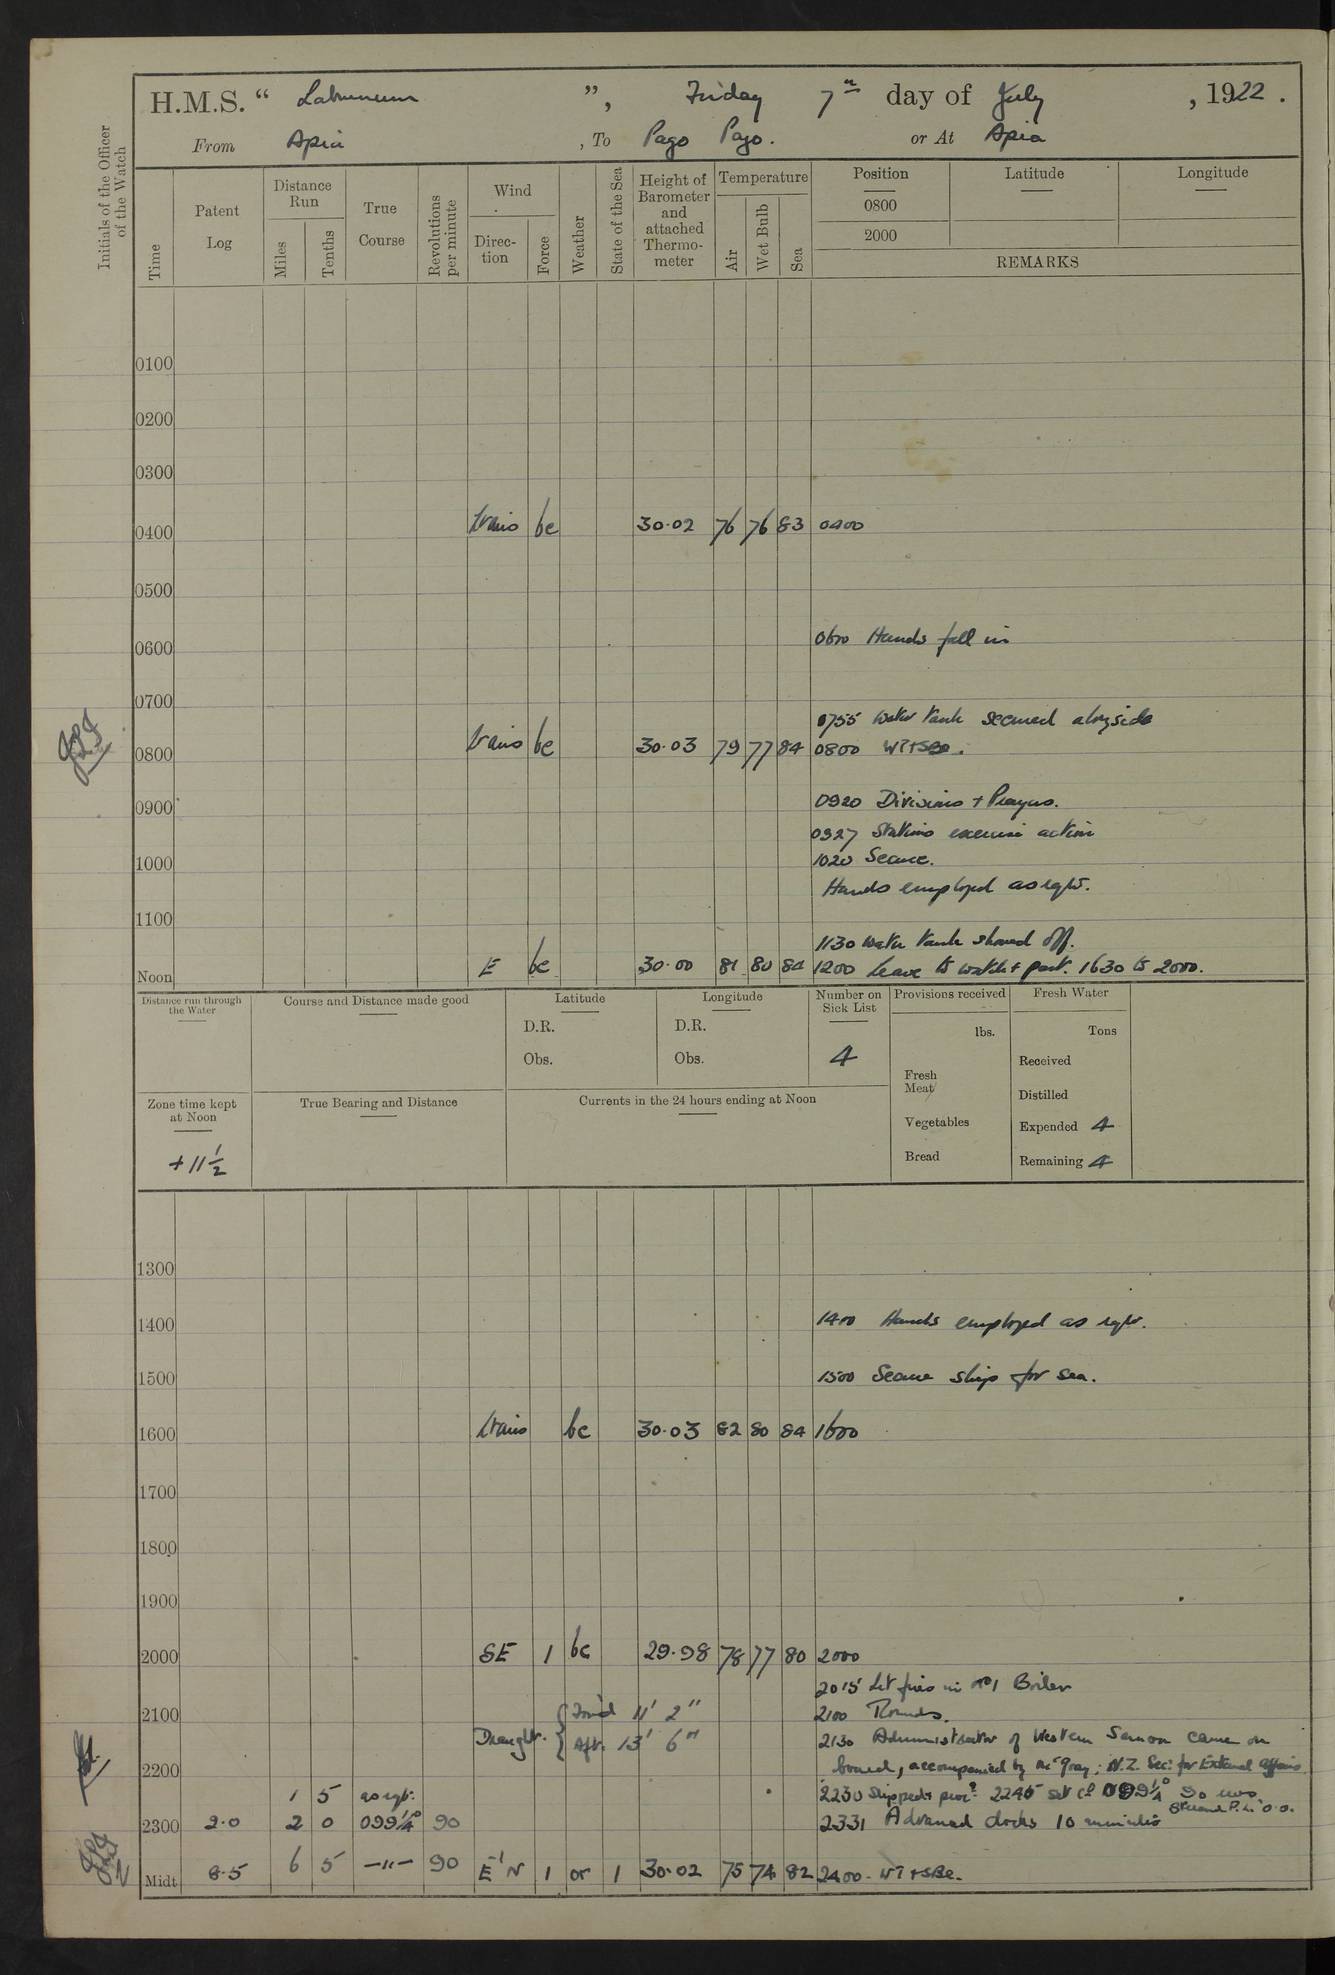 H.M.S. “ Laburnum ”, Friday 7th day of July , 1922 .
From Apia , To Pago Pago. or At Apia
Initials of the Officer of the Watch
Time
Patent Log
Distance Run
Miles
Tenths
True Course
Revolutions per minute
Wind
Direc- tion
Force
Weather
State of the Sea
Height of Barometer and attached Thermo- meter
Temperature
Air
Wet Bulb
Sea
Position Latitude Longitude
0800
2000
REMARKS
0100
0200
0300
0400 bc 30·02 76 76 83 0400
0500
0600 0600 Hands fall in
0700
0755 Water tank secured alongside
0800 bc 30·03 79 77 84 0800
0900 0920 Divisions + Prayers.
0927 Stations exercise action
1000 1020 Secure.
Hands employed as reqte.
1100
1130 Water tank shoved off.
Noon E bc 30·00 81 80 84 1200 Leave to watch + part. 1630 to 2000.
Distance run through the Water
Course and Distance made good
Latitude
D.R.
Obs.
Longitude
D.R.
Obs.
Number on Sick List
4
Provisions received
lbs.
Fresh Meat
Vegetables
Bread
Fresh Water
Tons
Received
Distilled
Expended 4
Remaining 4
Zone time kept at Noon
+ 11 1/2
True Bearing and Distance
Currents in the 24 hours ending at Noon
1300
1400 1400 Hands employed as reqte.
1500 1500 Secure ship for sea.
1600 bc 30·03 82 80 84 1600
1700
1800
1900
2000 SE 1 bc 29·98 78 77 80 2000
2015 Lit fires in No 1 Boiler
2100 Draught. { For'd 11' 2" 2100 Rounds.
{ Aft. 13' 6" 2130 Administrator of Western Samoa came on
2200 board, accompanied by Mr Gray; N.Z. Sec: for External Affairs
1 5 as reqte. 2230 Slipped + procd 2245 set Co 099 1/4° 90 revs
2300 2·0 2 0 099 1/4° 90 2331 Advanced clocks 10 minutes
Midt 8·5 6 5 —"— 90 E'N 1 or 1 30·02 75 74 82 2400.